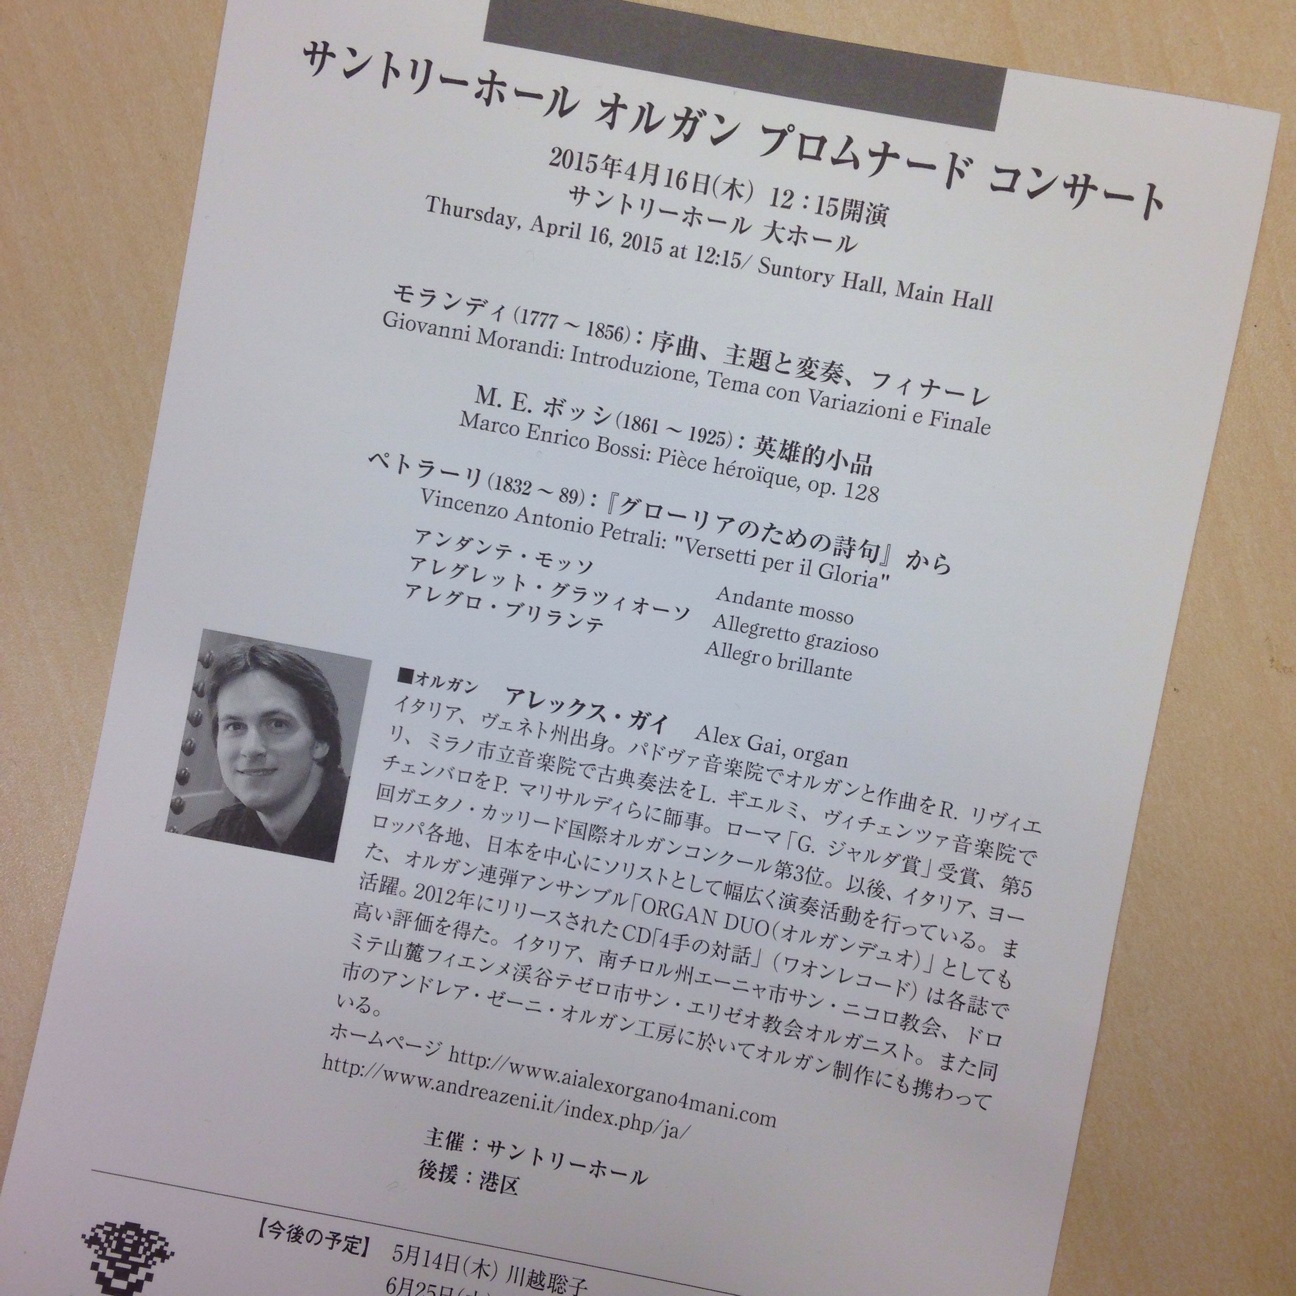 サントリーホール オルガン プロムナード コンサート
2015年4月16日(木) 12：15開演
サントリーホール 大ホール
Thursday, April 16, 2015 at 12:15/ Suntory Hall, Main Hall
モランディ(1777 ~ 1856)：序曲、主題と変奏、フィナーレ
Giovanni Morandi: Introduzione, Tema con Variazioni e Finale
M. E. ボッシ(1861 ~ 1925)：英雄的小品
Marco Enrico Bossi: Pièce héroïque, op. 128
ペトラーリ(1832 ~ 89)：『グローリアのための詩句』から
Vincenzo Antonio Petrali: "Versetti per il Gloria"
アンダンテ・モッソ Andante mosso
アレグレット・グラツィオーソ Allegretto grazioso
アレグロ・ブリランテ Allegro brillante
■オルガン アレックス・ガイ Alex Gai, organ
イタリア、ヴェネト州出身。パドヴァ音楽院でオルガンと作曲をR. リヴィエ
リ、ミラノ市立音楽院で古典奏法をL. ギエルミ、ヴィチェンツァ音楽院で
チェンバロをP. マリサルディらに師事。ローマ「G. ジャルダ賞」受賞、第5
回ガエタノ・カッリード国際オルガンコンクール第3位。以後、イタリア、ヨー
ロッパ各地、日本を中心にソリストとして幅広く演奏活動を行っている。ま
た、オルガン連弾アンサンブル「ORGAN DUO(オルガンデュオ)」としても
活躍。2012年にリリースされたCD「4手の対話」(ワオンレコード)は各誌で
高い評価を得た。イタリア、南チロル州エーニャ市サン・ニコロ教会、ドロ
ミテ山麓フィエンメ渓谷テゼロ市サン・エリゼオ教会オルガニスト。また同
市のアンドレア・ゼーニ・オルガン工房に於いてオルガン制作にも携わって
いる。
ホームページ http://www.aialexorgano4mani.com
http://www.andreazeni.it/index.php/ja/
主催：サントリーホール
後援：港区
【今後の予定】 5月14日(木) 川越聡子
6月25日